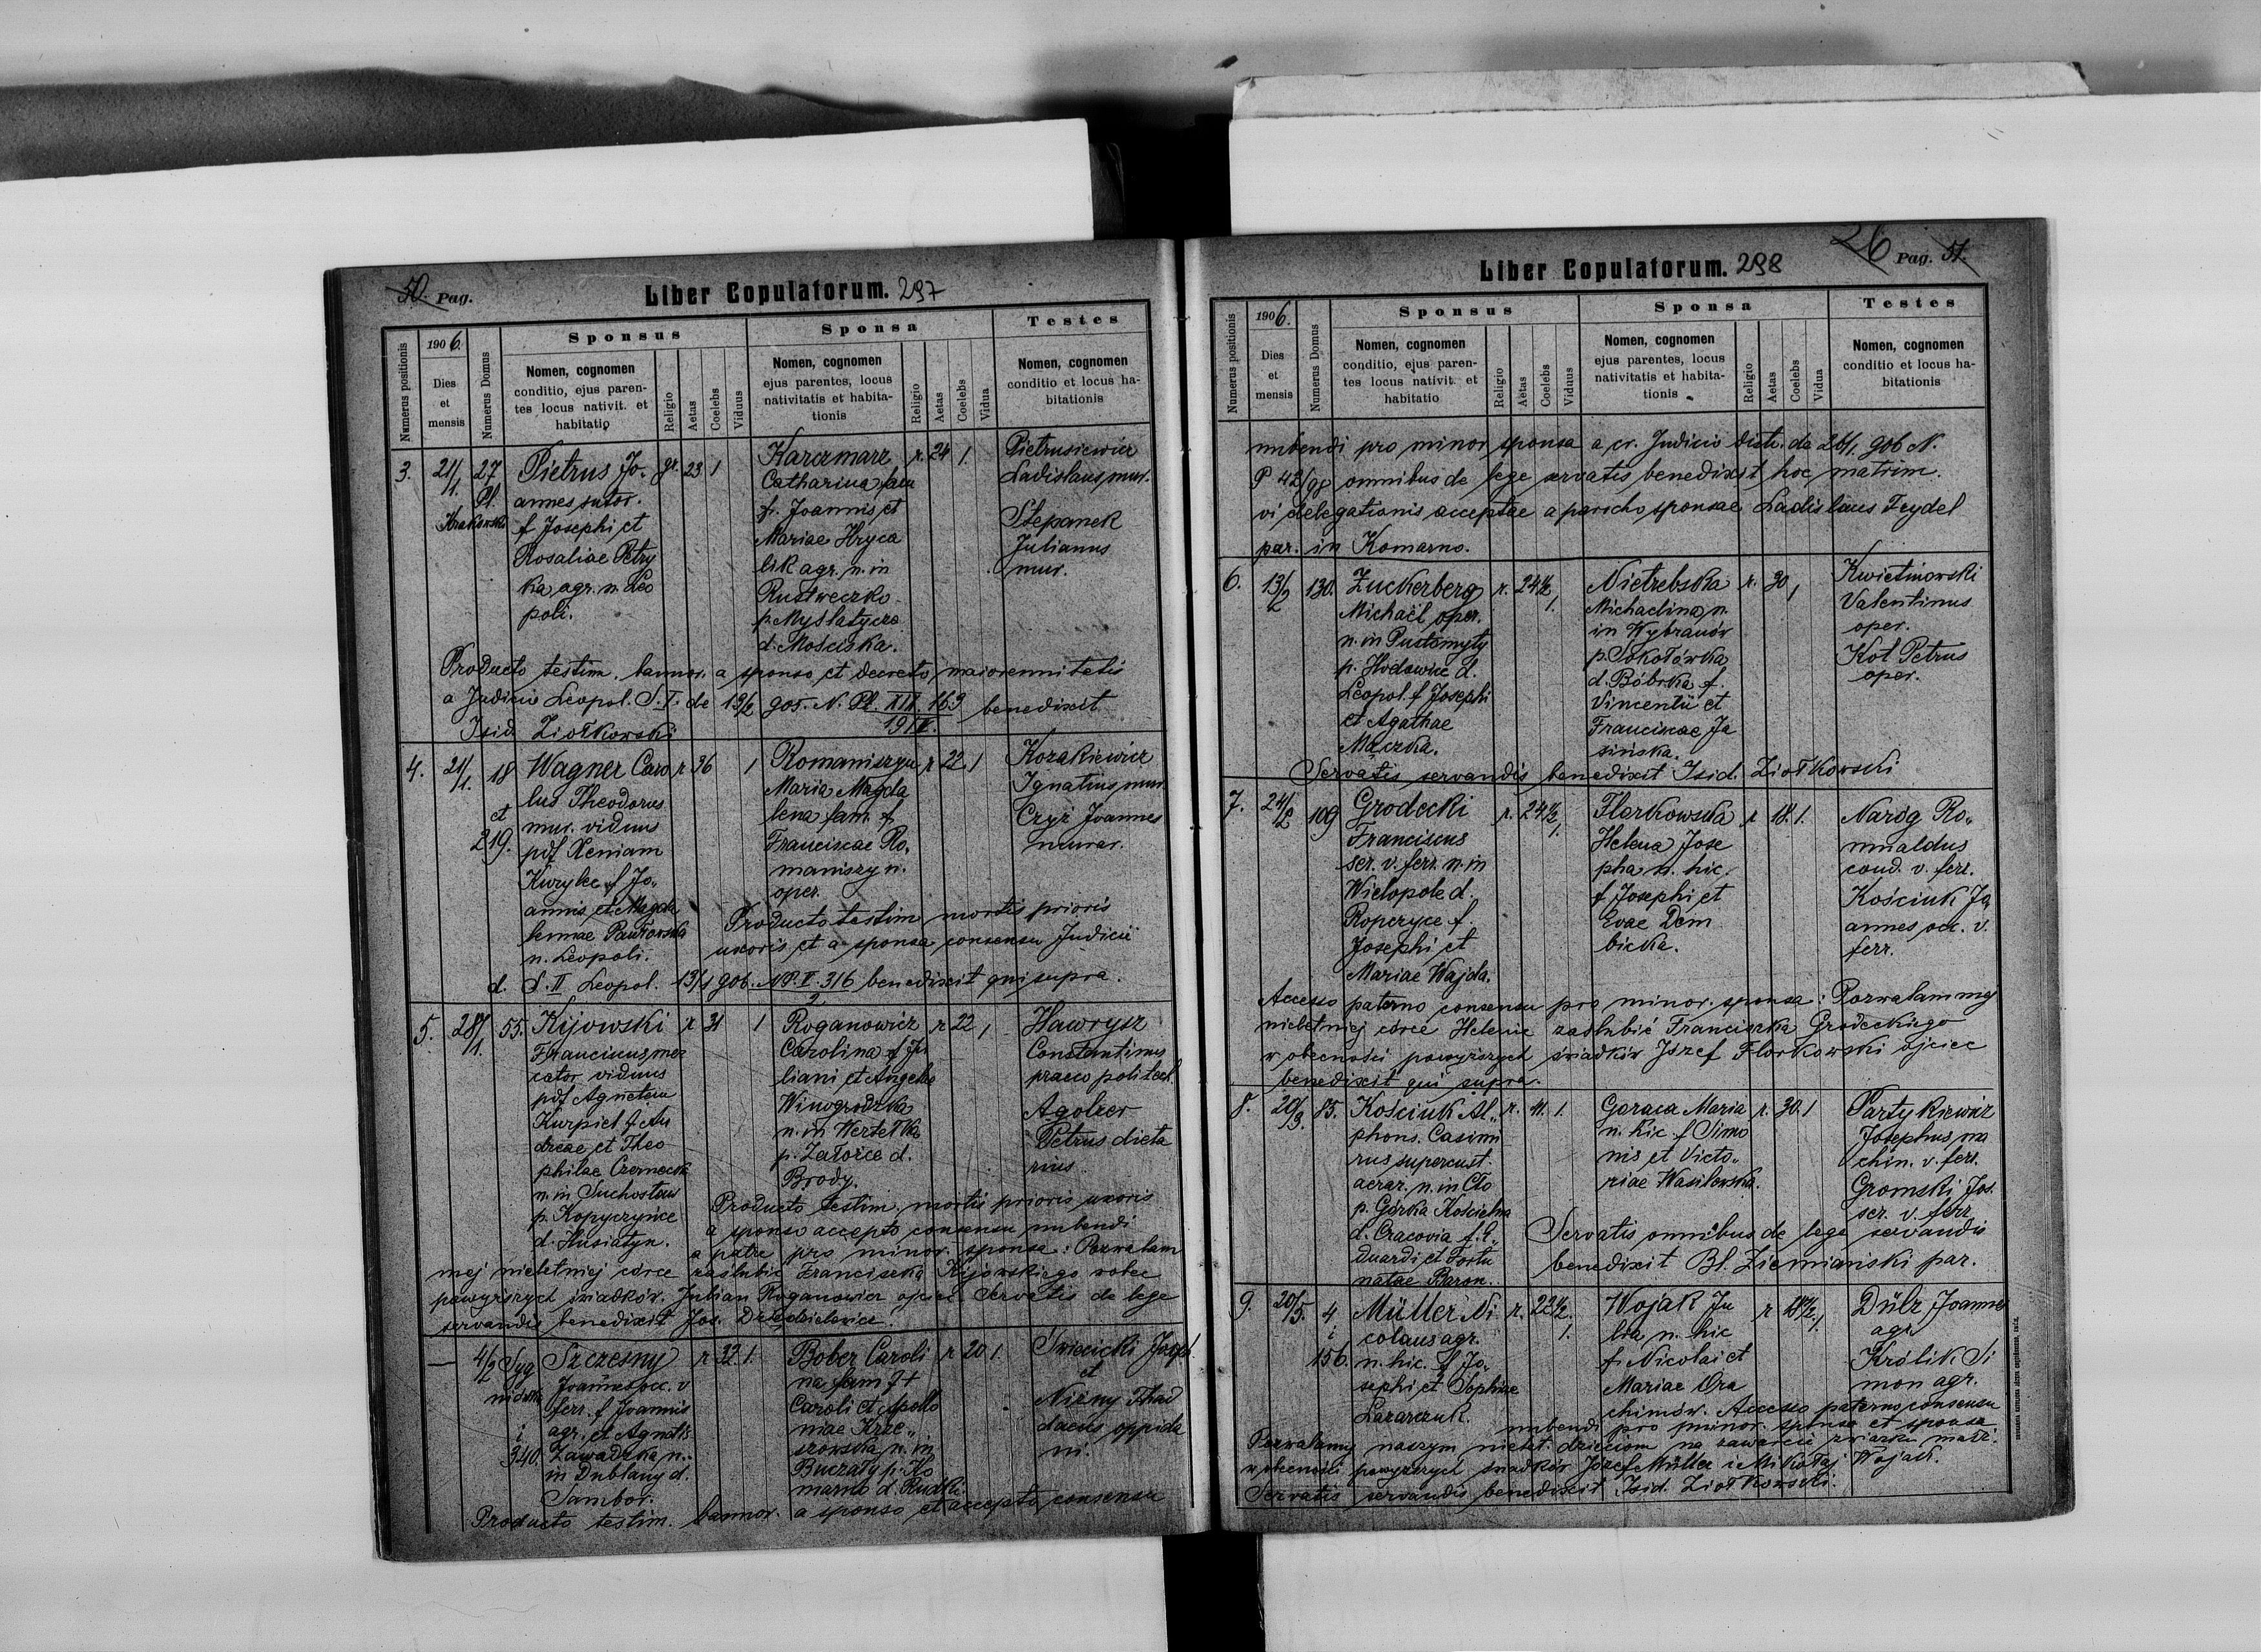 50. Pag.
Liber Copulatorum. 297
Numerus positionis
1906.
Dies
et
mensis
Numerus Domus
Sponsus
Nomen, cognomen
conditio, ejus paren-
tes locus nativit. et
habitatio
Religio
Aetas
Coelebs
Viduus
Sponsa
Nomen, cognomen
ejus parentes, locus
nativitatis et habita-
tionis
Religio
Aetas
Coelebs
Vidua
Testes
Nomen, cognomen
conditio et locus ha-
bitationis
3.
21/1.
27
Pl.
Krakowski
Pietrus Jo-
annes sutor.
f Josephi et
Rosaliae Petry
ka agr. n. Leo
poli.
gr. 23 1
Karczmarz
Catharina fam
f. Joannis et
Mariae Hryca
lik agr. n. in
Rustweczko
p. Myslatycze
d. Mościska.
r. 24 1.
Pietrusiewicz
Ladislaus mur.
Stepanek
Julianus
mur.
Producto testim. bannor. a sponso et decreto maiorennitatis
a Judicio Leopol. S. I. de 13/2 905. N. Pl. XIII. 163 benedixit
19 IV.
Isid. Ziołkowski
4.
21/1.
18
et
219.
Wagner Caro
lus Theodorus
mur. viduus
pdf Xeniam
Kurylec f Jo-
annis et Magda
lennae Pawłowska
n. Leopoli.
r 36 1
Romaniszyn
Maria Magda
lena fam. f
Franciscae Ro-
maniszyn.
oper.
r 22. 1
Kozakiewicz
Ignatius mur.
Czyż Joannes
murar.
Producto testim mortis prioris
uxoris et a sponsa consensu Judicii
d. S. II Leopol. 13/1 906. N P. II. 316 benedixit qui supra.
2
5.
28/1.
55.
Kijowski
Franciscus mer
cator viduus
pdf Agnetem
Kurpiel f An
dreae et Theo
philae Czerneck
n. in Suchostaw
p. Kopyczyńce
d. Husiatyn.
r 31 1
Roganowicz
Carolina f Ju
liani et Angelae
Winogrodzka
n. in Wertełka
p. Załośce d.
Brody.
r 22 1
Hawrysz
Constantinus
praeco politech.
Agolzer
Petrus dieta
rius
Producto testim. mortis prioris uxoris
a sponso accepto consensu nubendi
a patre pro minor. sponsa: Pozwalam
mej nieletniej córce zaślubić Franciszka Kijowskiego wobec
powyższych świadków. Julian Roganowicz ojciec. Servatis de lege
servandis benedixit Jos. Dziędzielewicz.
—
4/2
Syg
niówka
i
340.
Szczesny
Joannes occ. v
ferr. f Joannis
agr. et Agnetis
Zawadzka n.
in Dublany d.
Sambor.
r 32 1.
Bober Caroli
na fam f +
Caroli et Apollo
niae Krze-
szowska n. in
Buczały p. Ko
marno d. Rudki.
r 20 1.
Swiecicki Joseph
et
Niźny Thad
daeus oppida
ni.
Producto testim. bannor. a sponso et accepto consensu
26 Pag. 51.
Liber Copulatorum. 298
Numerus positionis
1906.
Dies
et
mensis
Numerus Domus
Sponsus
Nomen, cognomen
conditio, ejus paren-
tes locus nativit. et
habitatio
Religio
Aetas
Coelebs
Viduus
Sponsa
Nomen, cognomen
ejus parentes, locus
nativitatis et habita-
tionis
Religio
Aetas
Coelebs
Vidua
Testes
Nomen, cognomen
conditio et locus ha-
bitationis
nubendi pro minor sponsa a cr. Judicio distr. da 26/1. 906 N.
P 42/98 omnibus de lege servatis benedixit hoc matrim.
vi delegationis acceptae a parocho sponsae Ladislaus Feydel
par. in Komarno.
6.
13/2
130.
Zuckerberg
Michaël oper.
n. in Pustomyty
p. Hodowice d.
Leopol. f Josephi
et Agathae
Mączka.
r. 24½ 1.
Nietrebska
Michaelina n.
in Wybranów
p. Sokołówka
d. Bóbrka f.
Vincentii et
Franciscae Ja
sińska.
r. 30 1
Kwietniowski
Valentinus
oper.
Kot Petrus
oper.
Servatis servandis benedixit Isid. Ziołkowski
7.
24/2
109
Grodecki
Franciscus
ser. v. ferr. n. in
Wielopole d.
Ropczyce f.
Josephi et
Mariae Wajda.
r. 24½ 1.
Florkowska
Helena Jose
pha n. hic.
f Josephi et
Evae Dem
bicka.
r 18. 1.
Naróg Ro-
mualdus
cond. v. ferr.
Kościuk Jo
annes occ. v.
ferr.
Accesso paterno consensu pro minor. sponsa: Pozwalam mej
nieletniej córce Helenie zaślubić Franciszka Grodeckiego
w obecności powyższych świadków Józef Florkowski ojciec
benedixit qui supra.
8.
20/3.
85.
Kościuk Al-
phons. Casimi
rus supercust.
aerar. n. in Cło
p. Górka Kościelna
d. Cracovia f. E-
duardi et Fortu
natae Baron.
r. 41. 1.
Goraca Maria
n. hic. f Simo
nis et Victo-
riae Wasilewska.
r. 30. 1
Partykiewicz
Josephus ma
chin. v. ferr.
Gromski Jos.
ser. v. ferr
Servatis omnibus de lege servandis
benedixit Bl. Ziemiański par.
9.
20/5.
4
i
156.
Müller Ni
colaus agr.
n. hic. f Jo-
sephi et Sophiae
Lazarczuk.
r. 22½. 1.
Wojak Ju
lia n. hic
f. Nicolai et
Mariae Ora
chimów.
r 18½. 1.
Dülz Joannes
agr.
Królik Si
mon agr.
Accesso paterno consensu
nubendi pro minor. sponso et sponsa
Pozwalamy naszym nielet. dzieciom na zawarcie związku małż.
w obecności powyższych świadków Józef Müller i Mikołaj Wojak.
Servatis servandis benedixit Isid. Ziołkowski.